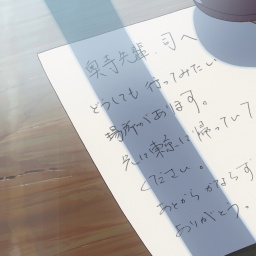 奥寺先輩、司へ
どうしても 行ってみたい
場所があります。
先に東京に帰ってい
ください。
あとからかならず
ありがとう。